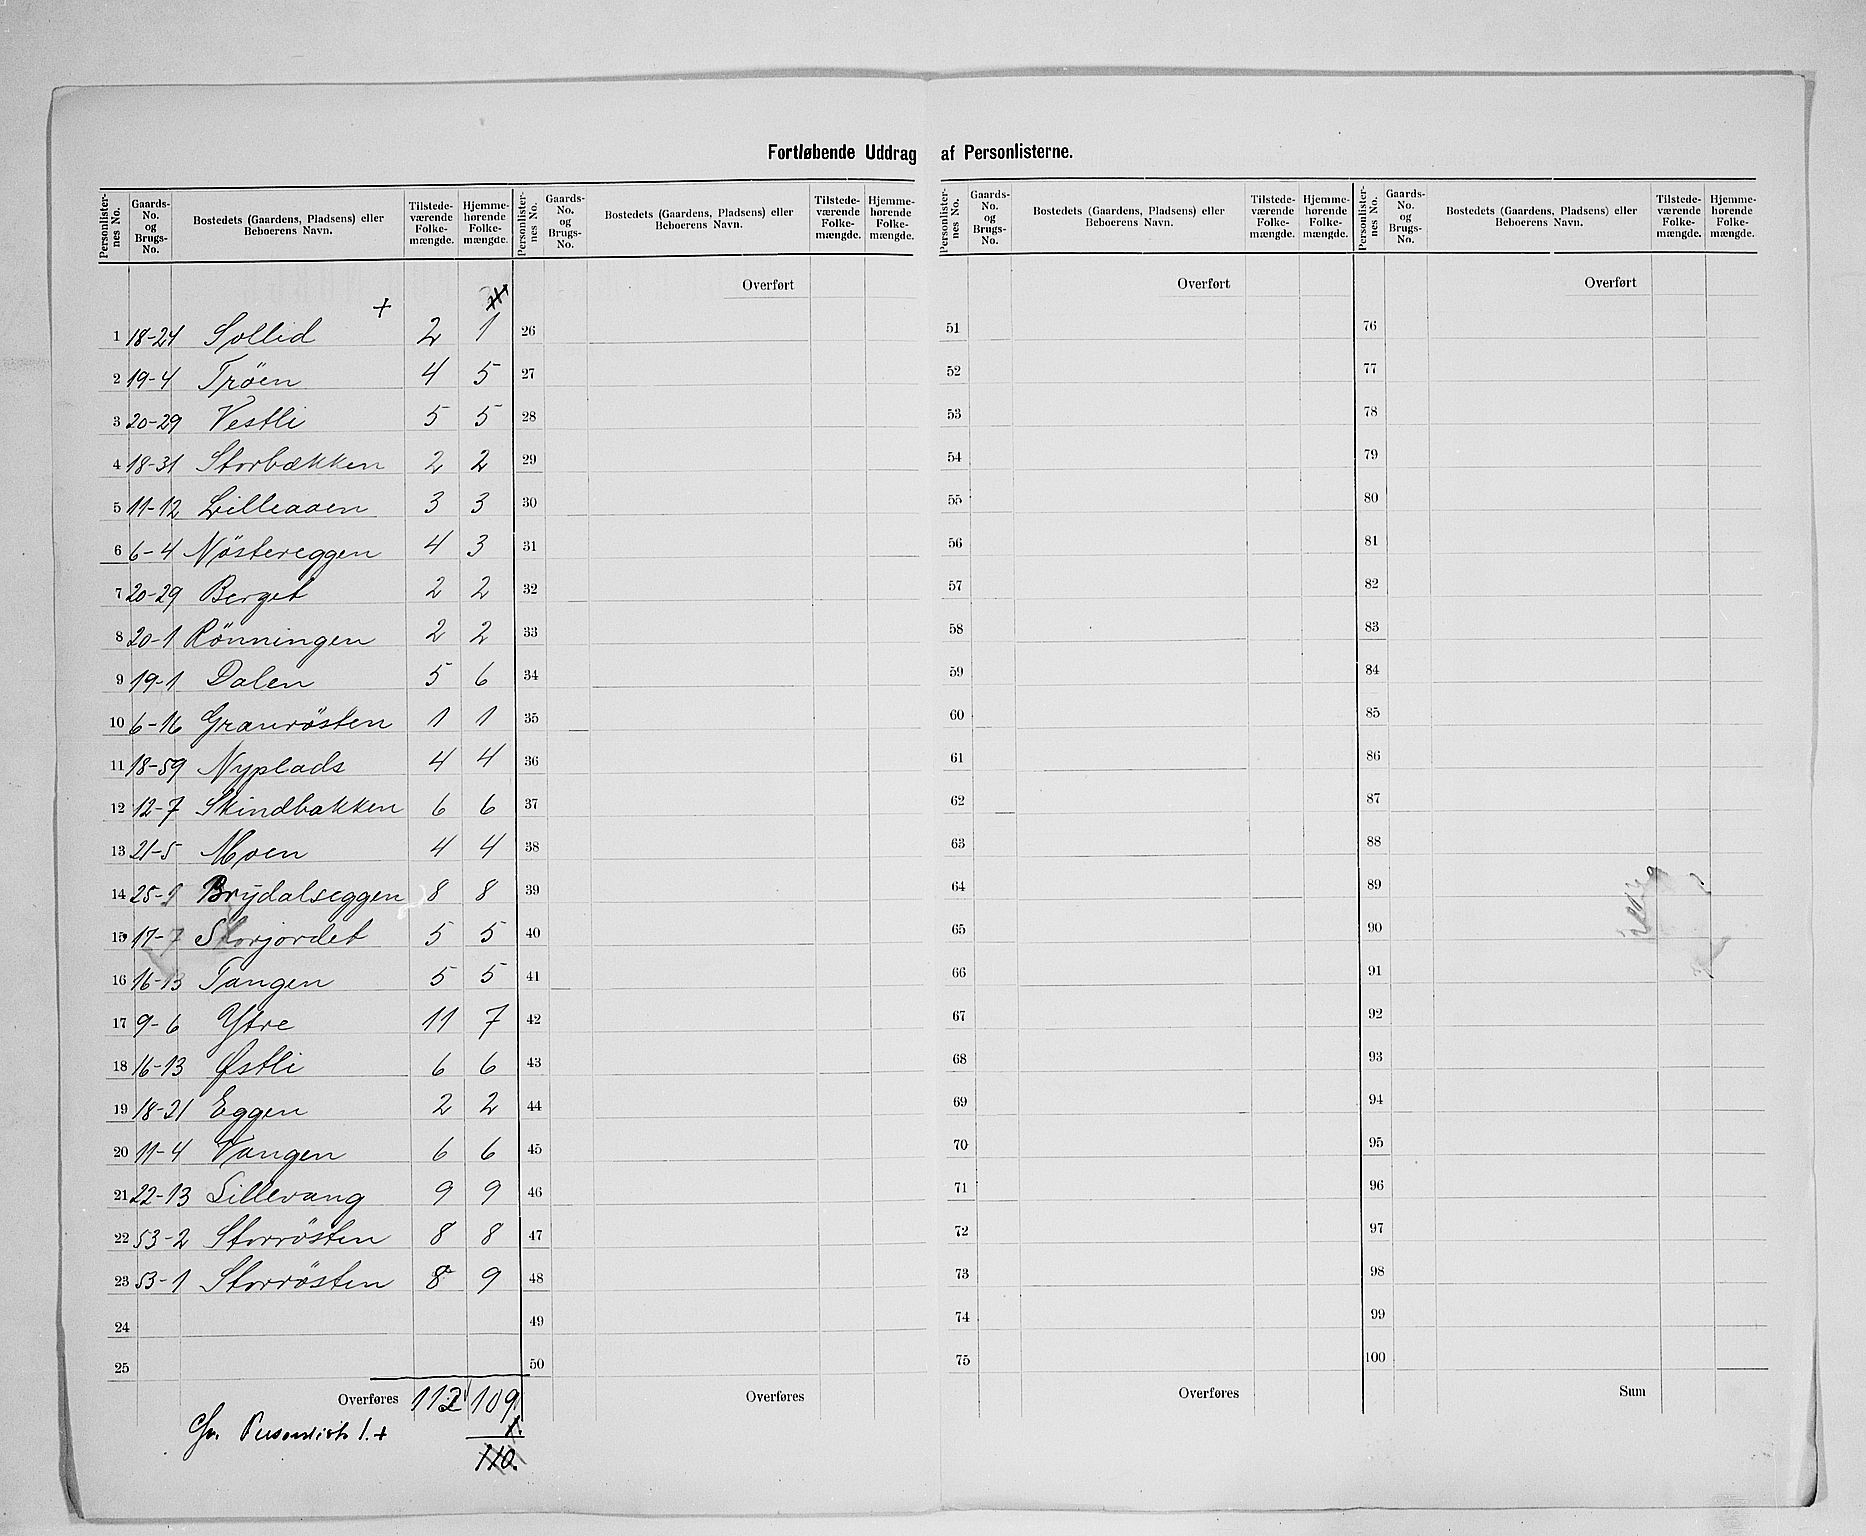 Fortløbende Uddrag af Personlisterne.
Personlister-nes No. Gaards-No. og Brugs-No. Bostedets (Gaardens, Pladsens) eller Beboerens Navn. Tilstede-værende Folke-mængde. Hjemme-hørende Folke-mængde. Personlister-nes No. Gaards-No. og Brugs-No. Bostedets (Gaardens, Pladsens) eller Beboerens Navn. Tilstede-værende Folke-mængde. Hjemme-hørende Folke-mængde. Personlister-nes No. Gaards-No. og Brugs-No. Bostedets (Gaardens, Pladsens) eller Beboerens Navn. Tilstede-værende Folke-mængde. Hjemme-hørende Folke-mængde. Personlister-nes No. Gaards-No. og Brugs-No. Bostedets (Gaardens, Pladsens) eller Beboerens Navn. Tilstede-værende Folke-mængde. Hjemme-hørende Folke-mængde.
Overført Overført Overført
+
1 18-24 Sollid 2 1 26 51 76
2 19-4 Tröen 4 5 27 52 77
3 20-29 Vestli 5 5 28 53 78
4 18-31 Storbækken 2 2 29 54 79
5 11-12 Lilleaaen 3 3 30 55 80
6 6-4 Nöstereggen 4 3 31 56 81
7 20-29 Berget 2 2 32 57 82
8 20-1 Rönningen 2 2 33 58 83
9 19-1 Dalen 5 6 34 59 84
10 6-16 Granrösten 1 1 35 60 85
11 18-59 Nyplads 4 4 36 61 86
12 12-7 Skindbakken 6 6 37 62 87
13 21-5 Moen 4 4 38 63 88
14 25-1 Brydalseggen 8 8 39 64 89
15 17-7 Storjordet 5 5 40 65 90
16 16-13 Tangen 5 5 41 66 91
17 9-6 Ytre 11 7 42 67 92
18 16-13 Østli 6 6 43 68 93
19 18-21 Eggen 2 2 44 69 94
20 11-4 Vangen 6 6 45 70 95
21 22-13 Lillevang 9 9 46 71 96
22 53-2 Storrösten 8 8 47 72 97
23 53-1 Storrösten 8 9 48 73 98
24 49 74 99
25 50 75 100
Overføres 112 109 Overføres Overføres Sum
Personliste 1. + 1.
110.